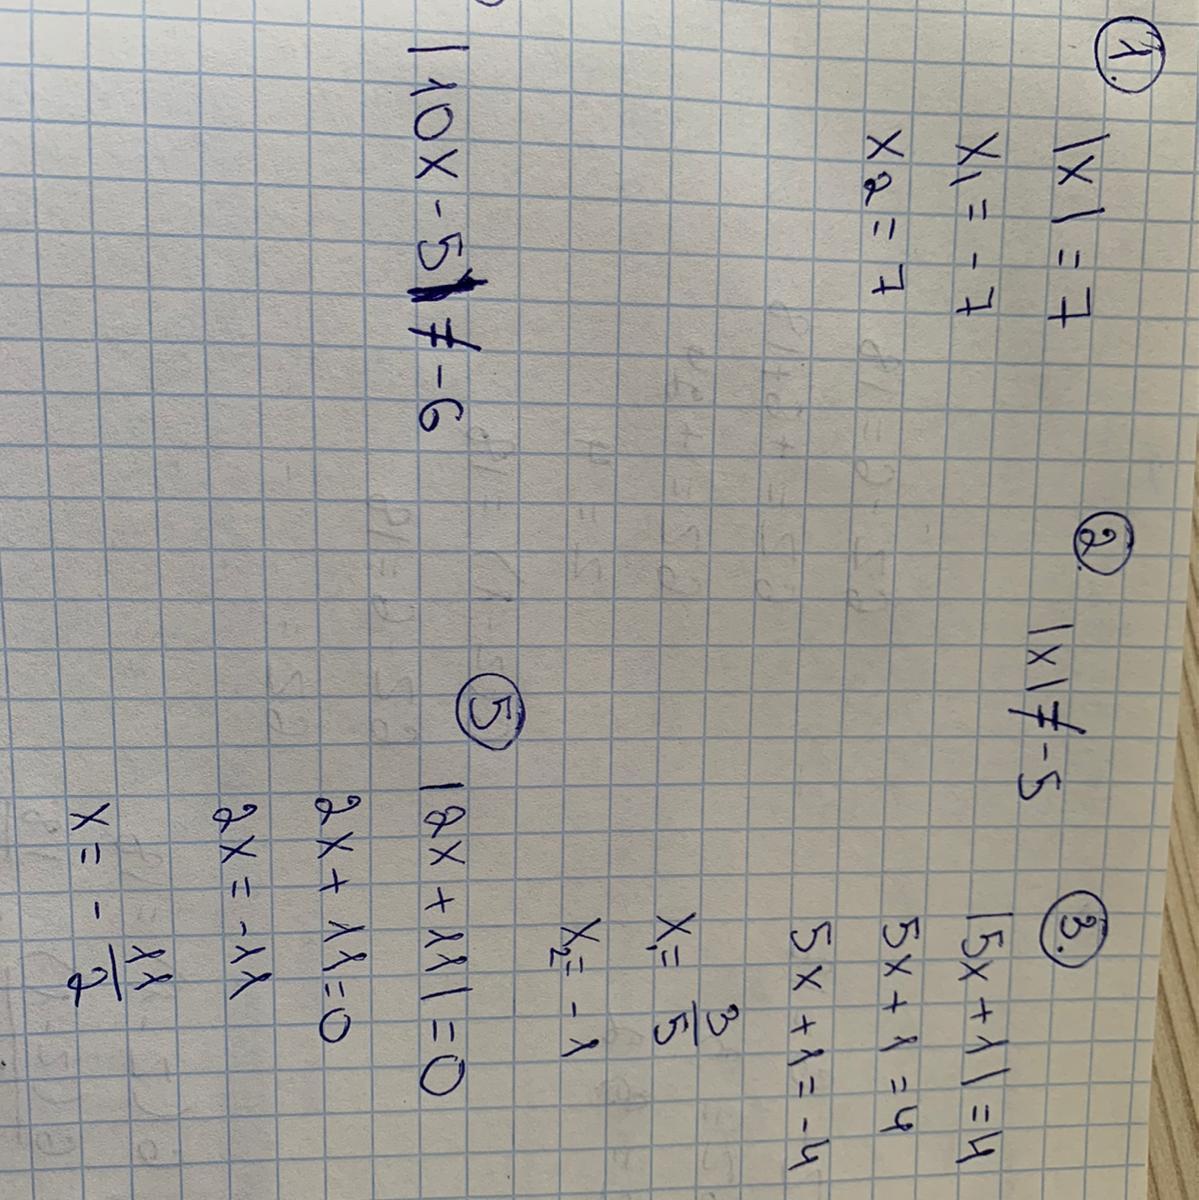 1.
|x|=7
x1=-7
x2=7
2.
|x|≠-5
3.
|5x+1|=4
5x+1=4
5x+1=-4
x1=3/5
x2=-1
|10x-5|≠-6
5
|2x+11|=0
2x+11=0
2x=-11
x=-11/2